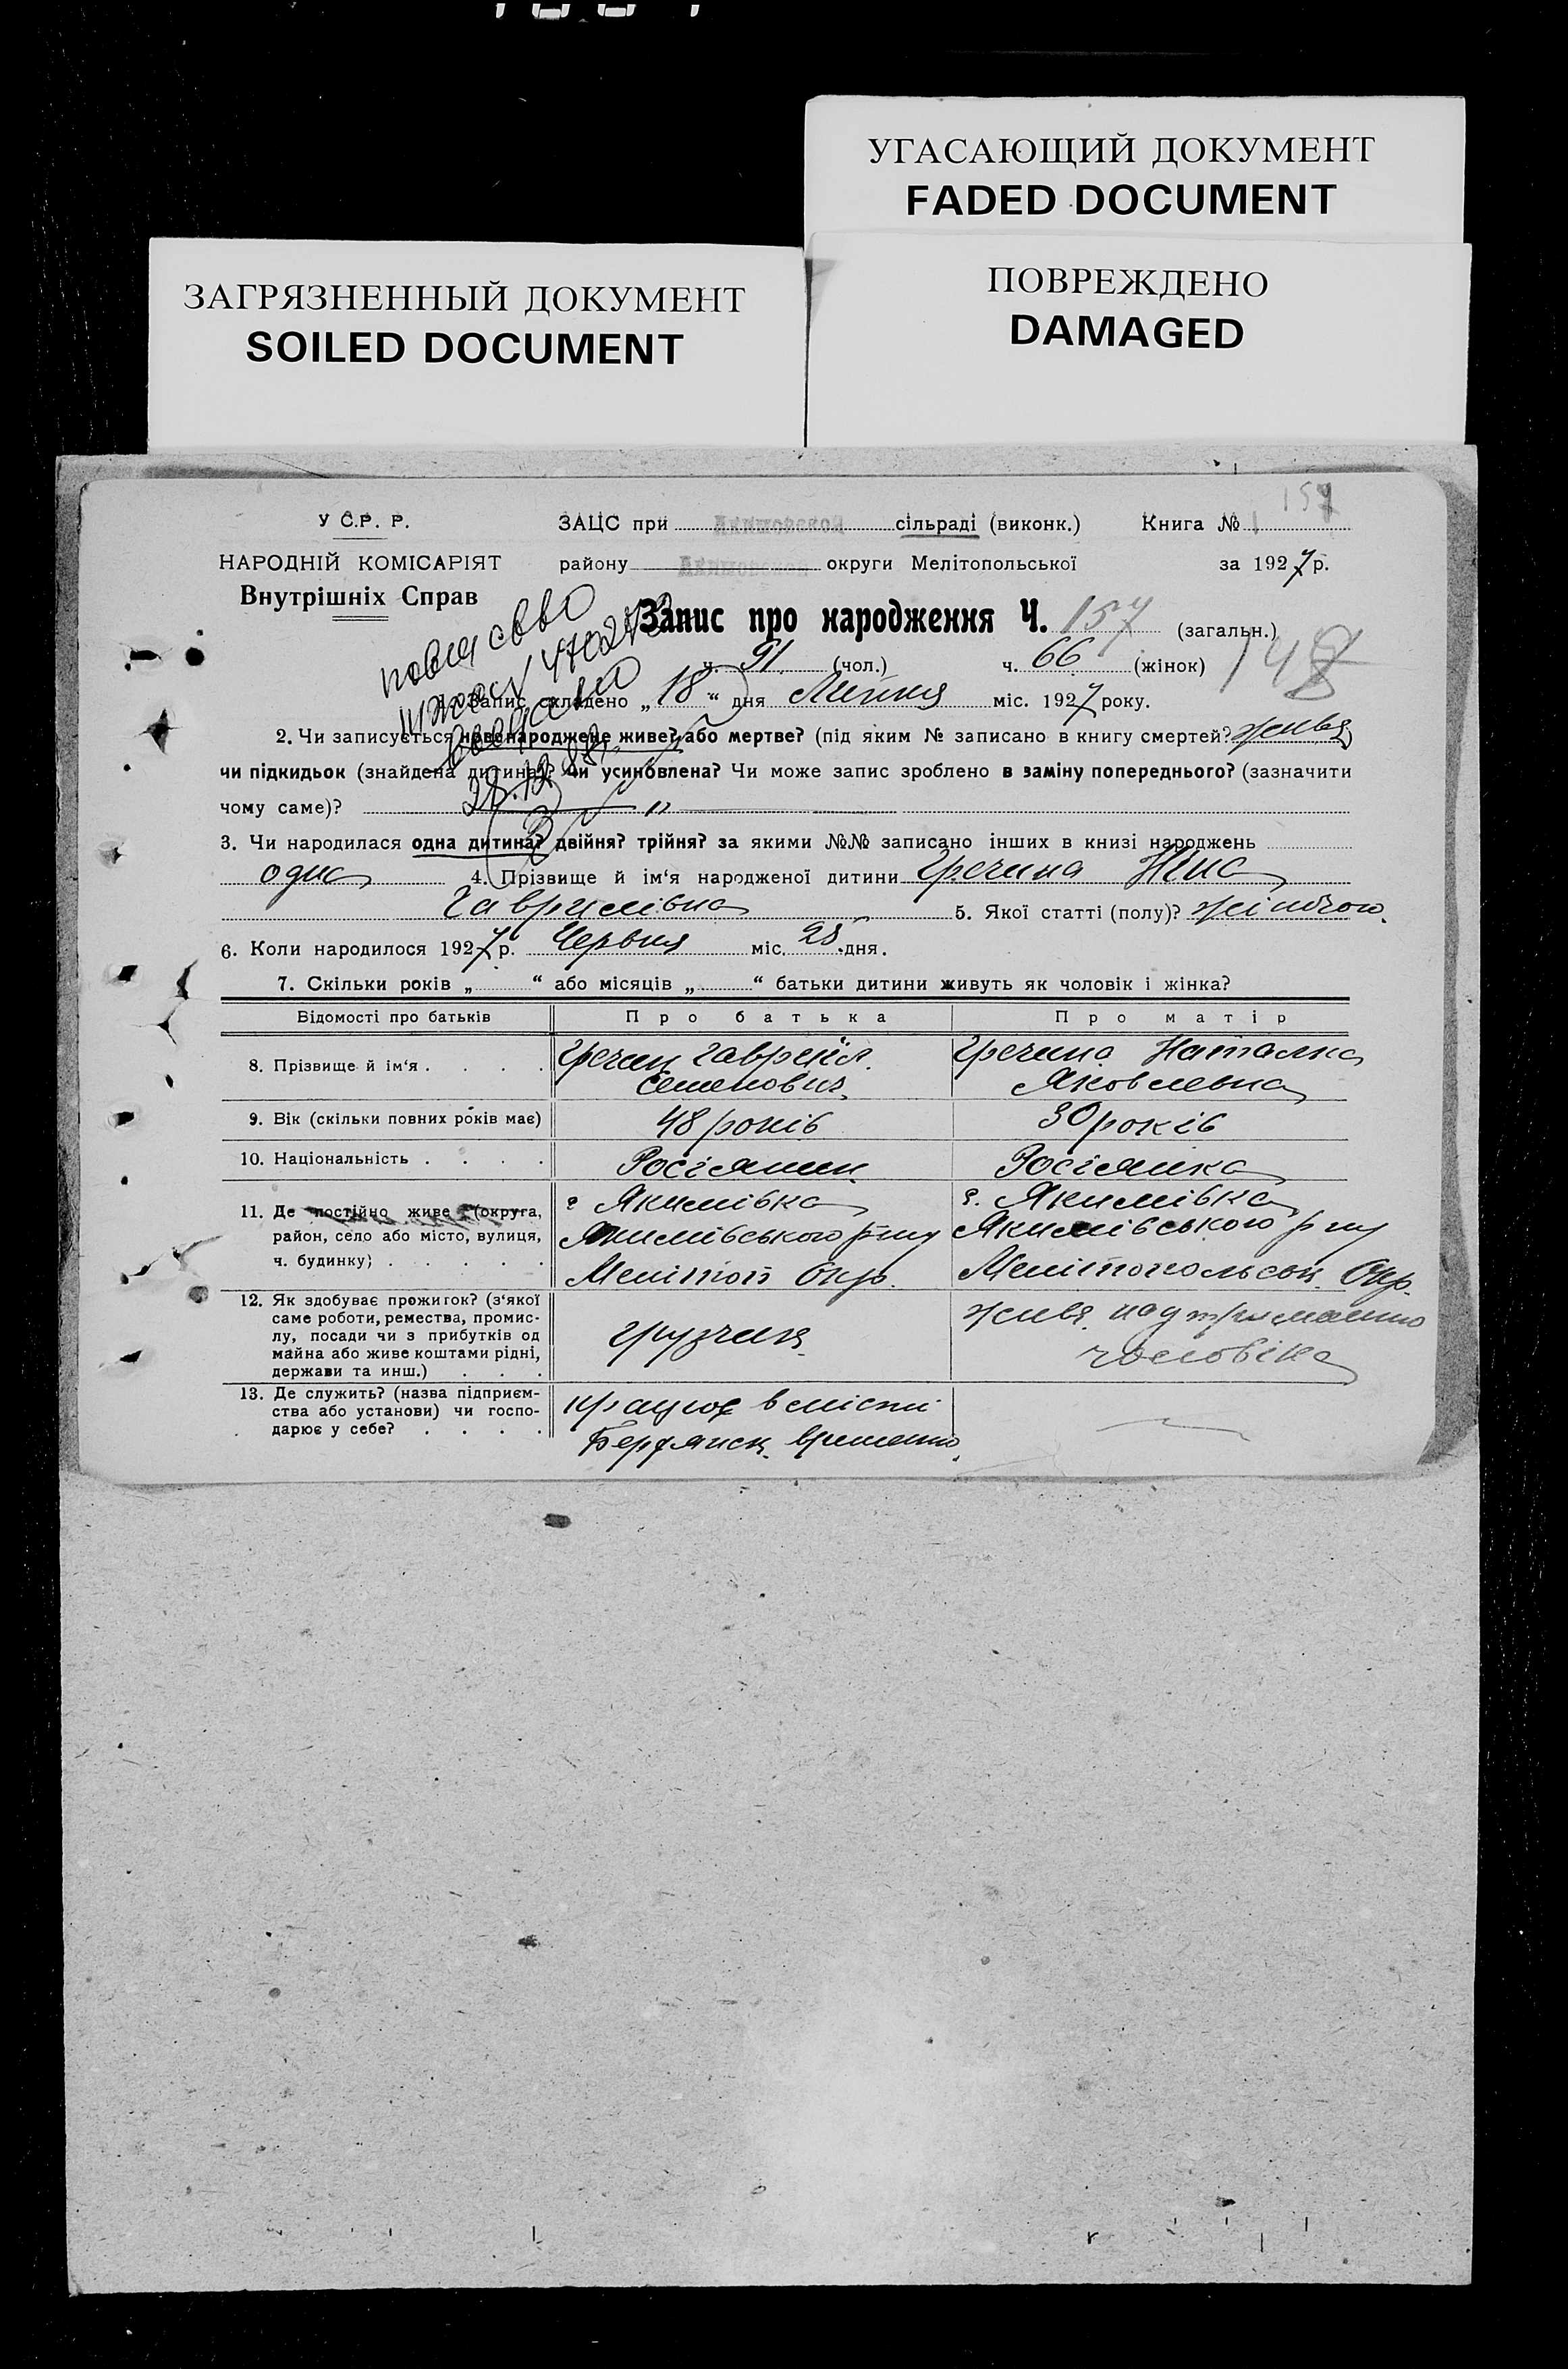 УГАСАЮЩИЙ ДОКУМЕНТ
FADED DOCUMENT
ЗАГРЯЗНЕННЫЙ ДОКУМЕНТ
SOILED DOCUMENT
ПОВРЕЖДЕНО
DAMAGED
157
У С.Р. Р.
ЗАЦС при сільраді (виконк.) Книга №
НАРОДНІЙ КОМІСАРІЯТ
району округи Мелітопольської за 1927 р.
Внутрішніх Справ
Запис про народження Ч. 157 (загальн.)
ч. 91 (чол.) ч. 66 (жінок) 148
Запис складено „18“ дня Липня міс. 1927 року.
2. Чи записується новонароджене живе? або мертве? (під яким № записано в книгу смертей? живе)
чи підкидьок (знайдена дитина)? чи усиновлена? Чи може запис зроблено в заміну попереднього? (зазначити
чому саме)? „
3. Чи народилася одна дитина? двійня? трійня? за якими №№ записано інших в книзі народжень
одна 4. Прізвище й ім‘я народженої дитини Гречина Ніна
Гаврилівна 5. Якої статті (полу)? жіночою.
6. Коли народилося 1927 р. Червня міс. 25 дня.
7. Скільки років „ “ або місяців „ “ батьки дитини живуть як чоловік і жінка?
Відомості про батьків Про батька Про матір
8. Прізвище й ім‘я . . . . Гречин Гавреїл Гречина Наталка
Семенович Яковлевна
9. Вік (скільки повних років має) 48 років 30 років
10. Національність . . . . Росіянин Росіянка
11. Де постійно живе (округа, район, село або місто, вулиця, ч. будинку) . . . . .
с. Якимівка с. Якимівка
Якимівського р-ну Якимівського р-ну
Мелітоп Окр. Мелітопольськ. Окр.
12. Як здобуває прожиток? (з‘якої
саме роботи, ремества, промис-
лу, посади чи з прибутків од
майна або живе коштами рідні,
держави та инш.) . . .
грузчик живе на утриманню
чоловіка
13. Де служить? (назва підприєм-
ства або установи) чи госпо-
дарює у себе? . . . .
працює в місті
Бердянск временно.